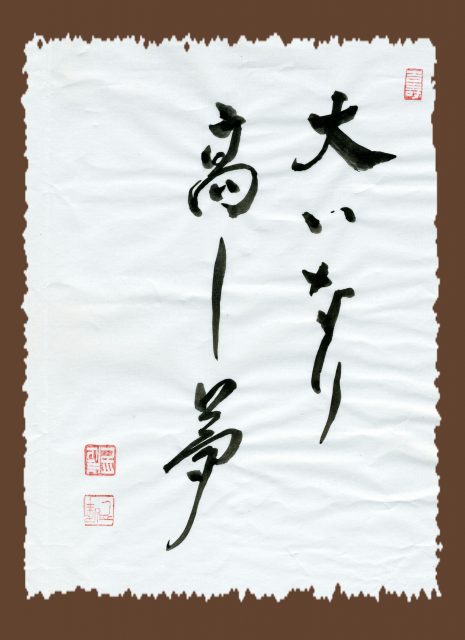 大いなり
高し夢